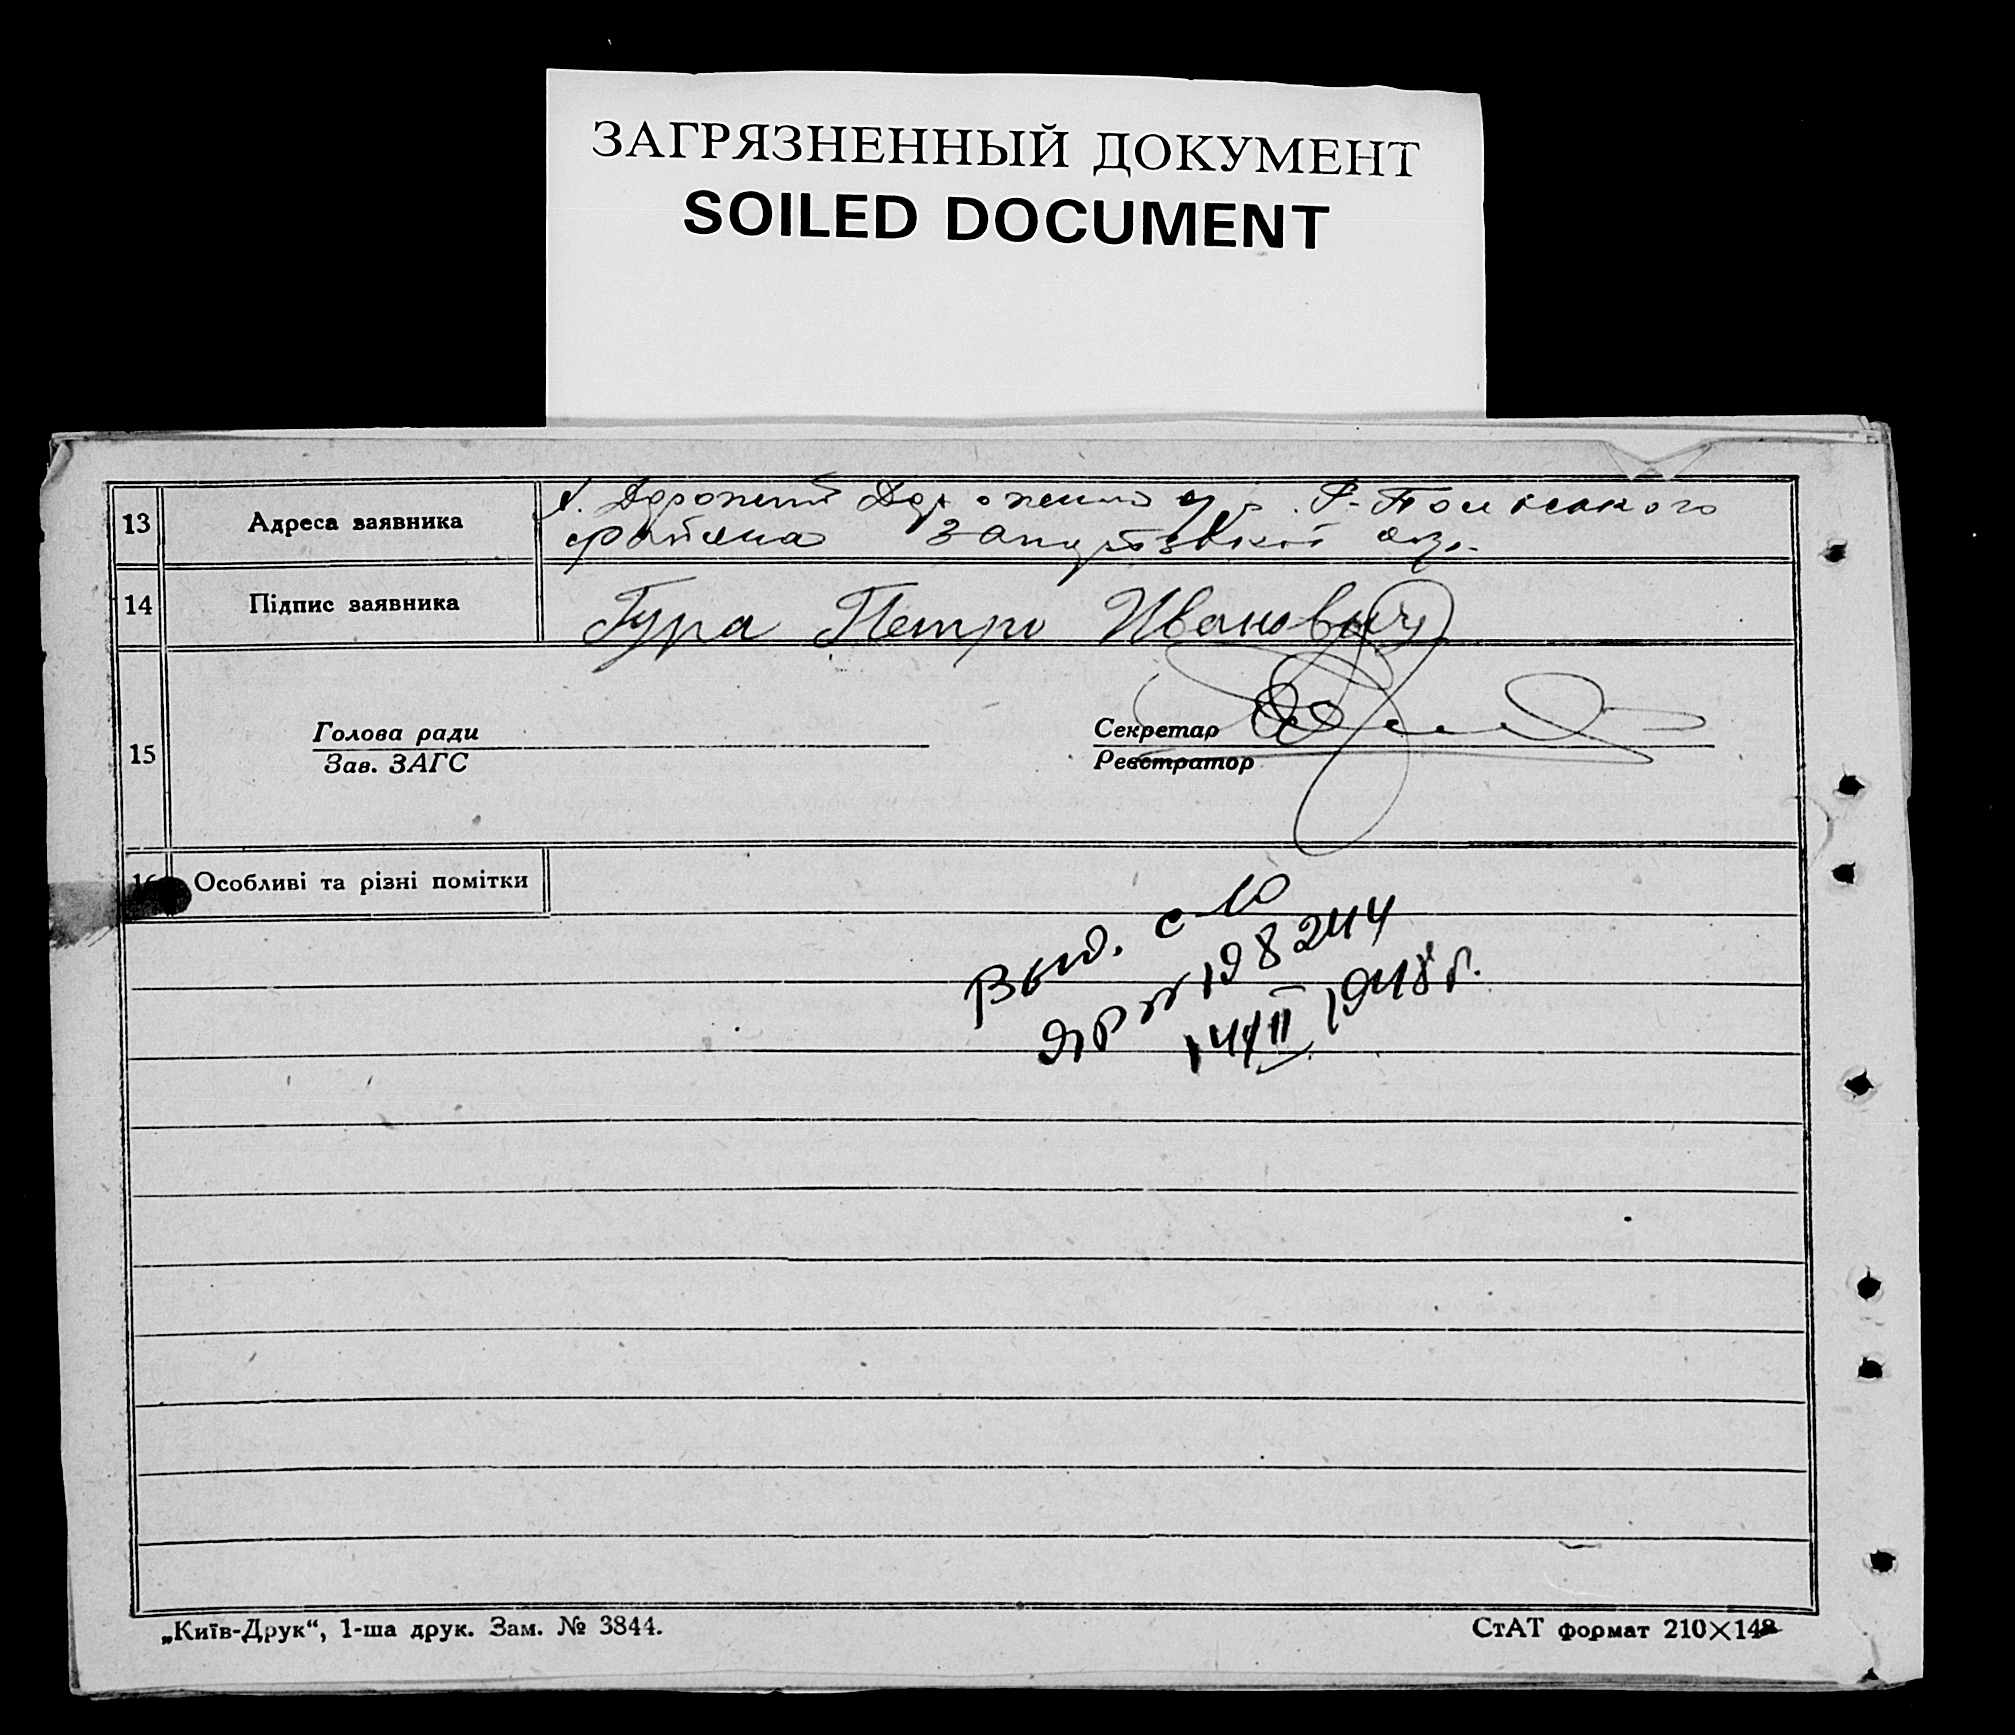 ЗАГРЯЗНЕННЫЙ ДОКУМЕНТ
SOILED DOCUMENT
13 Адреса заявника
района
14 Підпис заявника Гура Петро Иванович
15
Голова ради
Зав. ЗАГС
Секретар
Реєстратор
16 Особливі та різні помітки
Выд. с-во
№ 198244
14/II 1948 г.
„Київ-Друк“, 1-ша друк. Зам. № 3844.
СтАТ формат 210×148